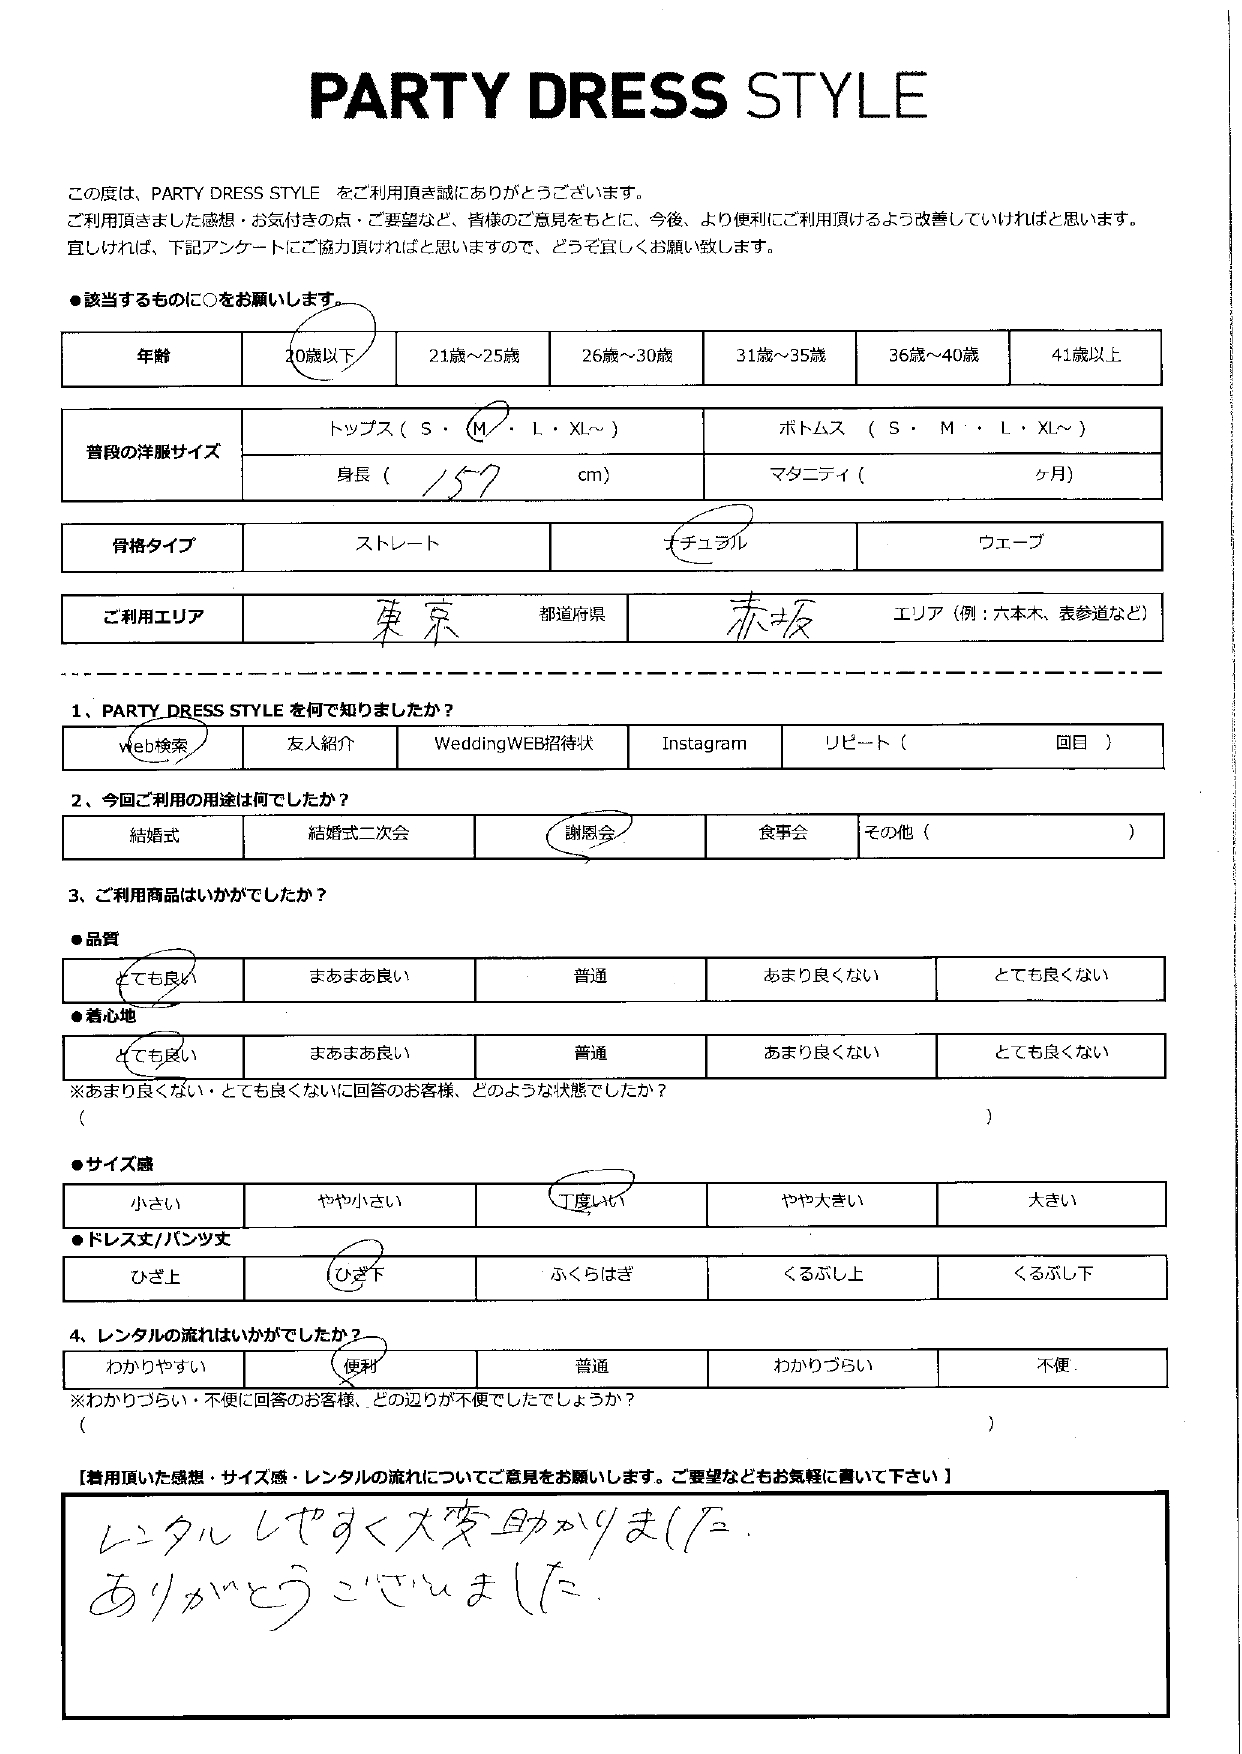 PARTY DRESS STYLE
この度は、PARTY DRESS STYLE をご利用頂き誠にありがとうございます。
ご利用頂きました感想・お気付きの点・ご要望など、皆様のご意見をもとに、今後、より便利にご利用頂けるよう改善していければと思います。
宜しければ、下記アンケートにご協力頂ければと思いますので、どうぞ宜しくお願い致します。
●該当するものに○をお願いします。
年齢 20歳以下 21歳～25歳 26歳～30歳 31歳～35歳 36歳～40歳 41歳以上
普段の洋服サイズ
トップス( S・ M ・ L・ XL～ ) ボトムス ( S・ M ・ L・ XL～ )
身長 ( 157 cm) マタニティ( ヶ月)
骨格タイプ ストレート ナチュラル ウェーブ
ご利用エリア 東京 都道府県 赤坂 エリア（例：六本木、表参道など）
1、PARTY DRESS STYLE を何で知りましたか？
web検索 友人紹介 WeddingWEB招待状 Instagram リピート（ 回目 ）
2、今回ご利用の用途は何でしたか？
結婚式 結婚式二次会 謝恩会 食事会 その他（ ）
3、ご利用商品はいかがでしたか？
●品質
とても良い まあまあ良い 普通 あまり良くない とても良くない
●着心地
とても良い まあまあ良い 普通 あまり良くない とても良くない
※あまり良くない・とても良くないに回答のお客様、どのような状態でしたか？
（ ）
●サイズ感
小さい やや小さい 丁度いい やや大きい 大きい
●ドレス丈/パンツ丈
ひざ上 ひざ下 ふくらはぎ くるぶし上 くるぶし下
4、レンタルの流れはいかがでしたか？
わかりやすい 便利 普通 わかりづらい 不便
※わかりづらい・不便に回答のお客様、どの辺りが不便でしたでしょうか？
（ ）
【着用頂いた感想・サイズ感・レンタルの流れについてご意見をお願いします。ご要望などもお気軽に書いて下さい】
レンタルしやすく大変助かりました.
ありがとうございました.